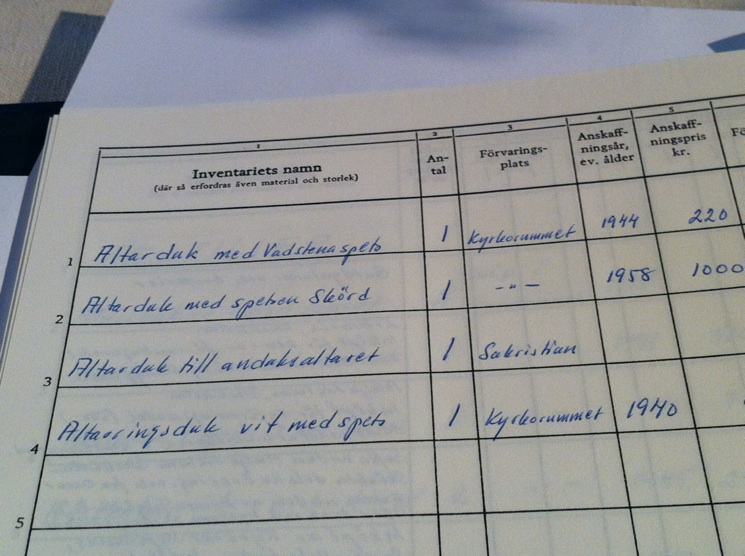 1 2 3 4 5
Inventariets namn
(där så erfordras även material och storlek)
An-
tal
Förvarings-
plats
Anskaff-
ningsår,
ev. ålder
Anskaff-
ningspris
kr.
1 Altarduk med Vadstenaspets 1 Kyrkorummet 1944 220
2 Altarduk med spetsen Skörd 1 -"- 1958 1000
3 Altarduk till andaksaltaret 1 Sakristian
4 Altarringsduk vit med spets 1 Kyrkorummet 1940
5